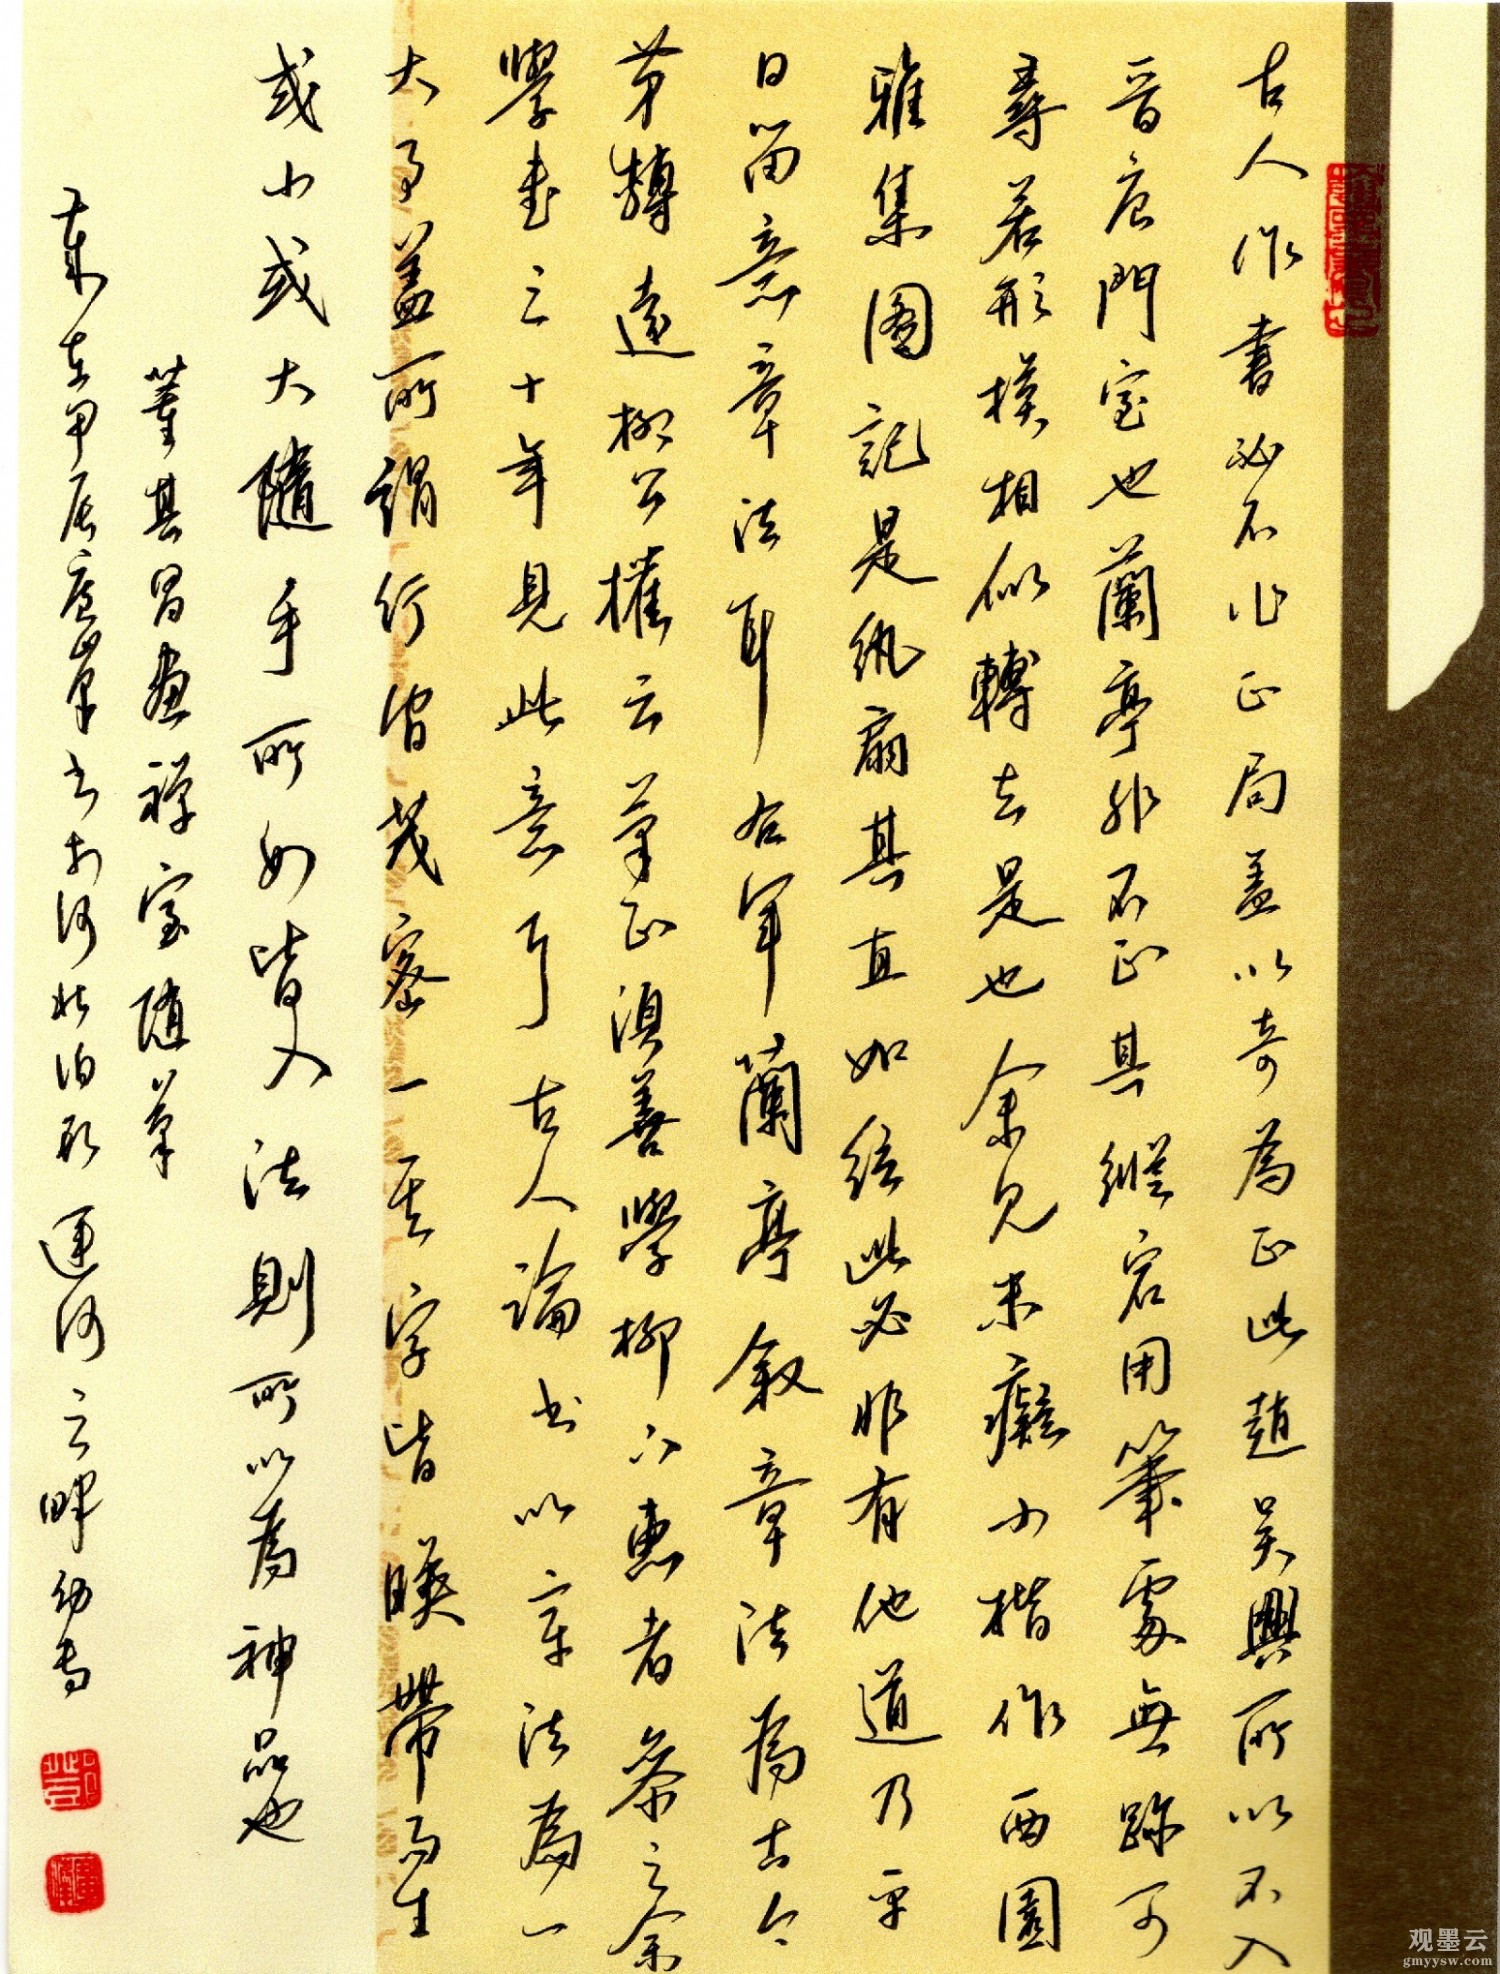 古人作書必不作正局蓋以奇為正此趙吳興所以不入
晉唐門室也蘭亭非不正其縱宕用筆處無跡可
尋若形模相似轉去是也余見米癡小楷作西園
雅集图記是紈扇其直如弦此必非有他道乃平
日留意章法耳右軍蘭亭敘章法為古今
第轉遠柳公權云筆正須善學柳下惠者參之余
學書三十年見此意耳古人論书以章法為一
大事蓋所謂行間茂密一其字皆映帶而生
或小或大隨手所如皆入法則所以為神品也
董其昌画禅室随筆
歲在甲辰书於河北泊頭運河之畔
观墨云
gmyysw.com